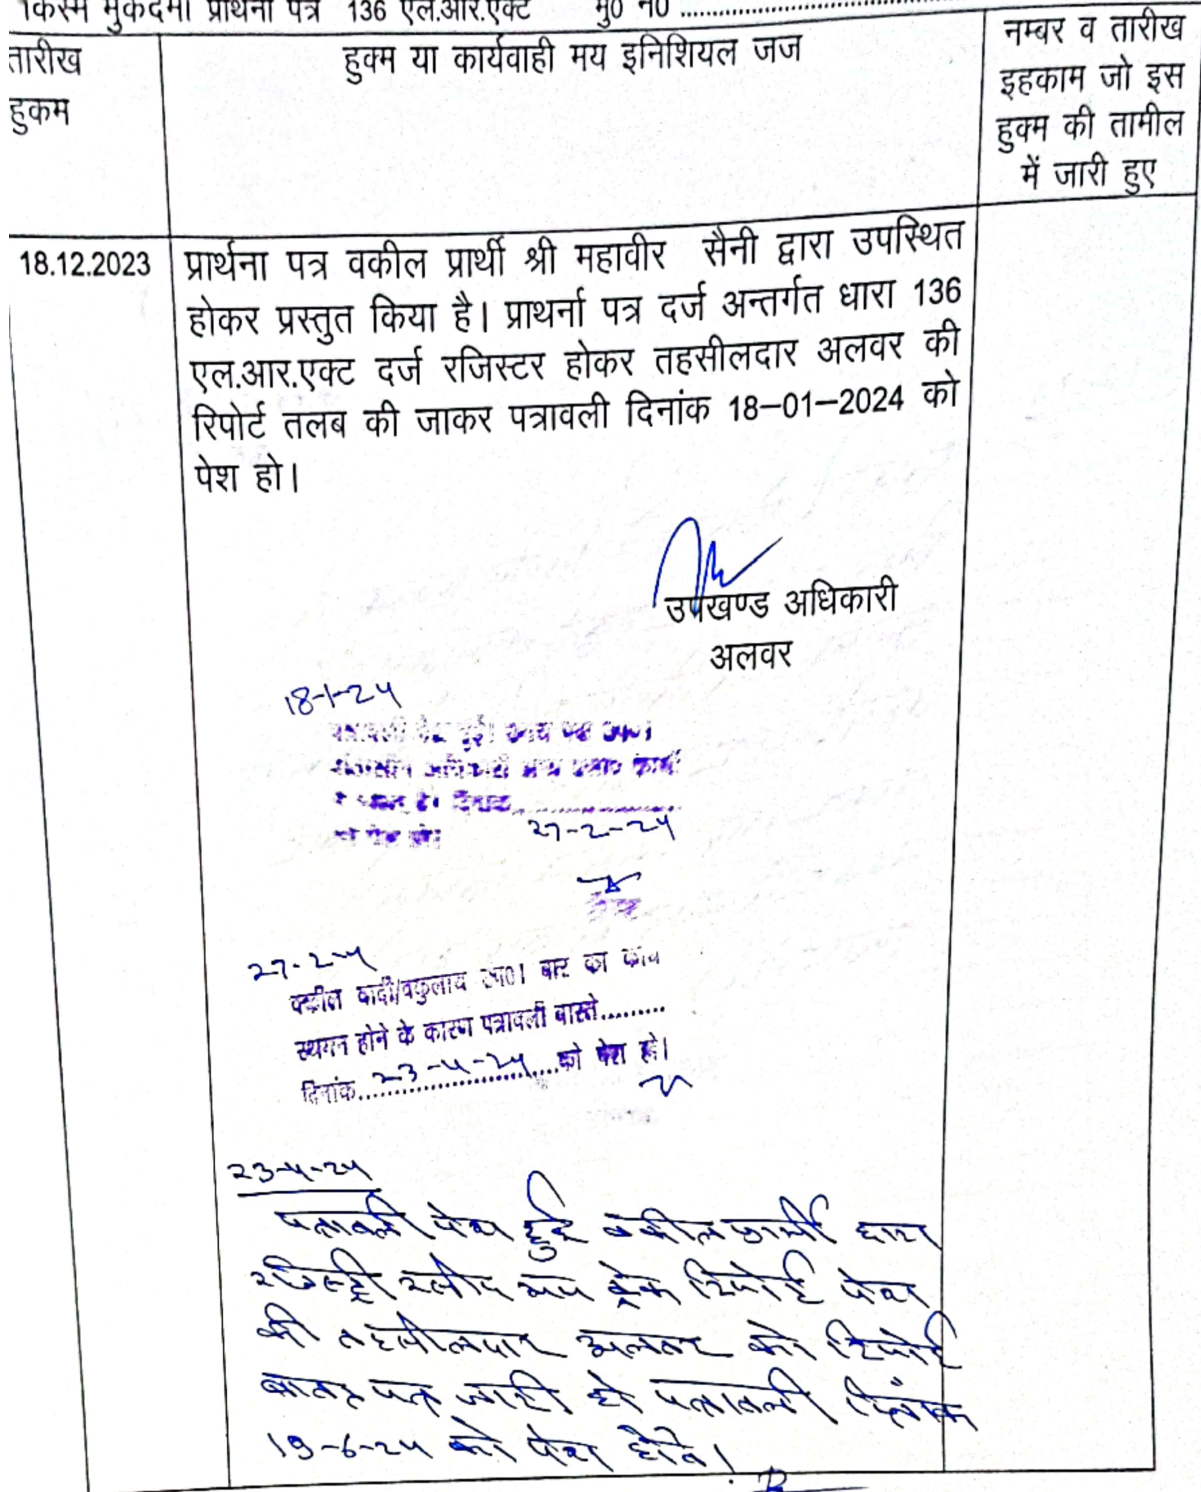 किस्म मुकदमा प्रार्थना पत्र 136 एल.आर.एक्ट मु0 न0 ..............................
तारीख हुकम
हुक्म या कार्यवाही मय इनिशियल जज
नम्बर व तारीख
इहकाम जो इस
हुक्म की तामील
में जारी हुए
18.12.2023
प्रार्थना पत्र वकील प्रार्थी श्री महावीर सैनी द्वारा उपस्थित
होकर प्रस्तुत किया है। प्राथर्ना पत्र दर्ज अन्तर्गत धारा 136
एल.आर.एक्ट दर्ज रजिस्टर होकर तहसीलदार अलवर की
रिपोर्ट तलब की जाकर पत्रावली दिनांक 18-01-2024 को
पेश हो।
उपखण्ड अधिकारी
अलवर
18-1-24
पत्रावली पेश हुई।
अधिकारी अन्य
को पेश हो।
27-2-24
27-2-24
वकील वादी/वकुलाय उप0। बार का कार्य
स्थगन होने के कारण पत्रावली वास्ते.........
दिनांक..23-4-24..को पेश हो।
23-4-24
पत्रावली पेश हुई वकील प्रार्थी द्वारा
रजिस्ट्री रसीद मय ट्रेक रिपोर्ट पेश
की तहसीलदार अलवर को रिपोर्ट
पत्र जारी हो पत्रावली दिनांक
19-6-24 को पेश होवे।